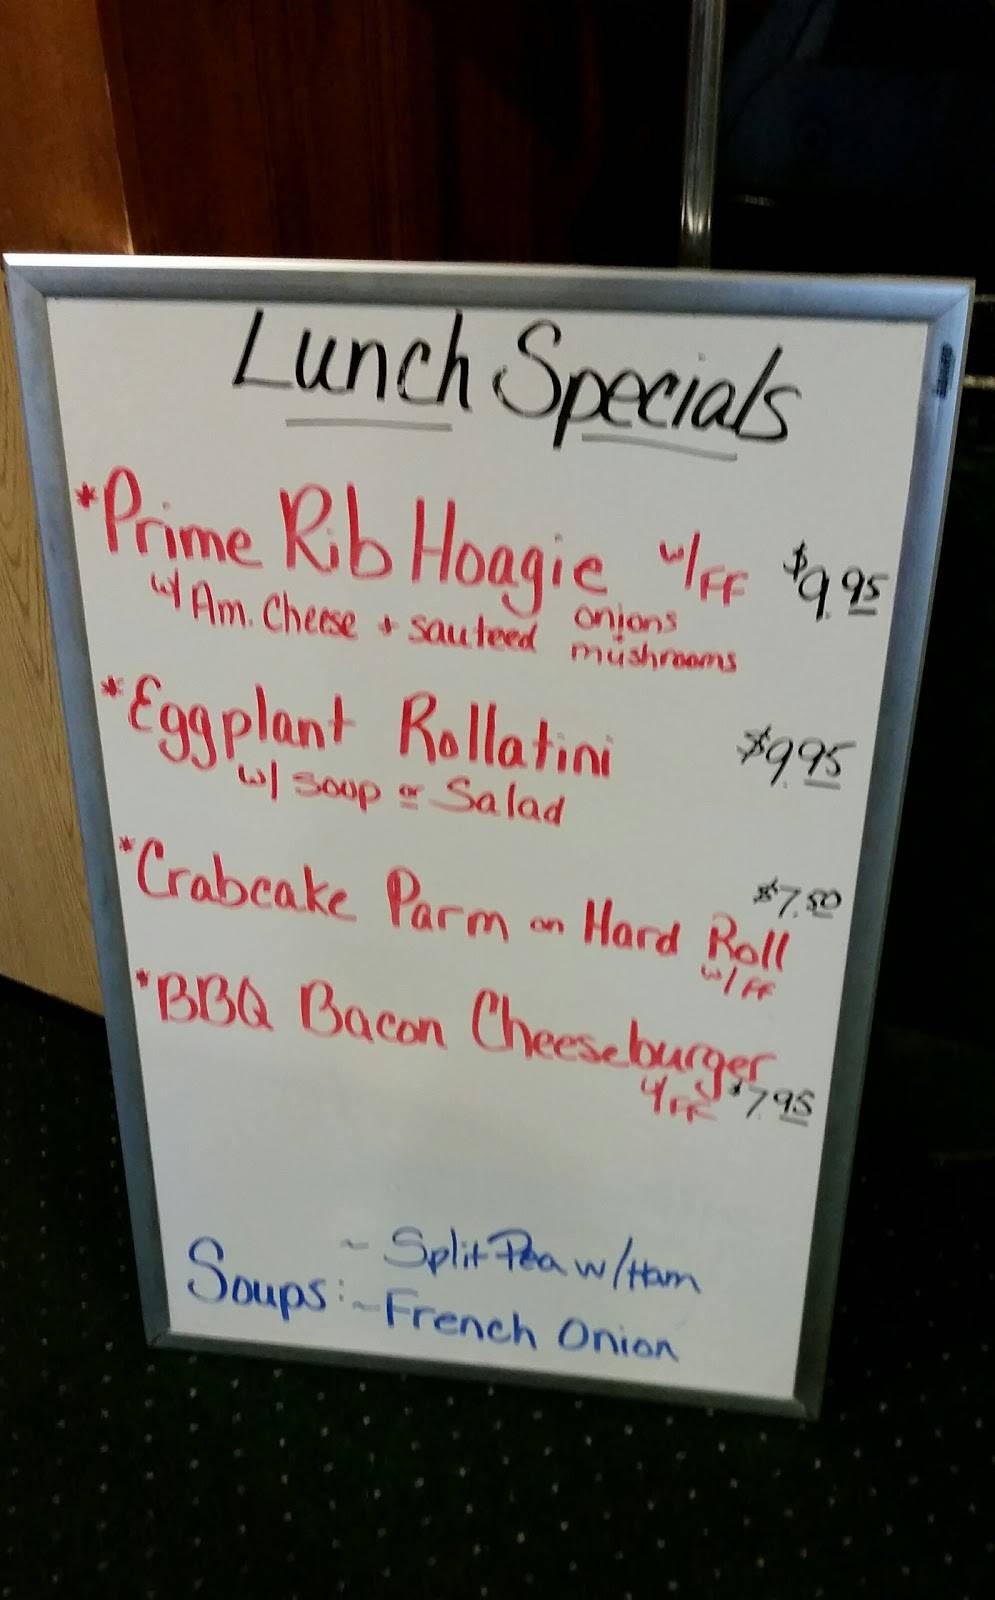 Lunch Specials
*Prime Rib Hoagie w/FF $9.95
w/ Am. Cheese + sauteed onions
mushrooms
*Eggplant Rollatini $9.95
w/ soup or Salad
*Crabcake Parm on Hard Roll $7.50
w/FF
*BBQ Bacon Cheeseburger
w/FF $7.95
Soups: ~ Split Pea w/Ham
~French Onion